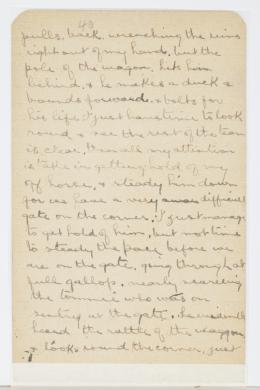 43
pulls back, wrenching the reins
right out of my hand, but the
pole of the wagon, hits him
behind, & he makes a duck &
bounds forward, & bolts for
his life. I just have time to look
round & see the rest of the team
is clear, then all my attention
is take in getting hold of my
off horse, & steady him down
for we have a very difficult
gate on the corner. I just manage
to get hold of him, but not time
to steady the pace before we
are on the gate, going through at
full gallop, nearly scareing
the tommie who was on
sentry at the gate, he evidently
heard the rattle of the waggon
& looks round the corner, just